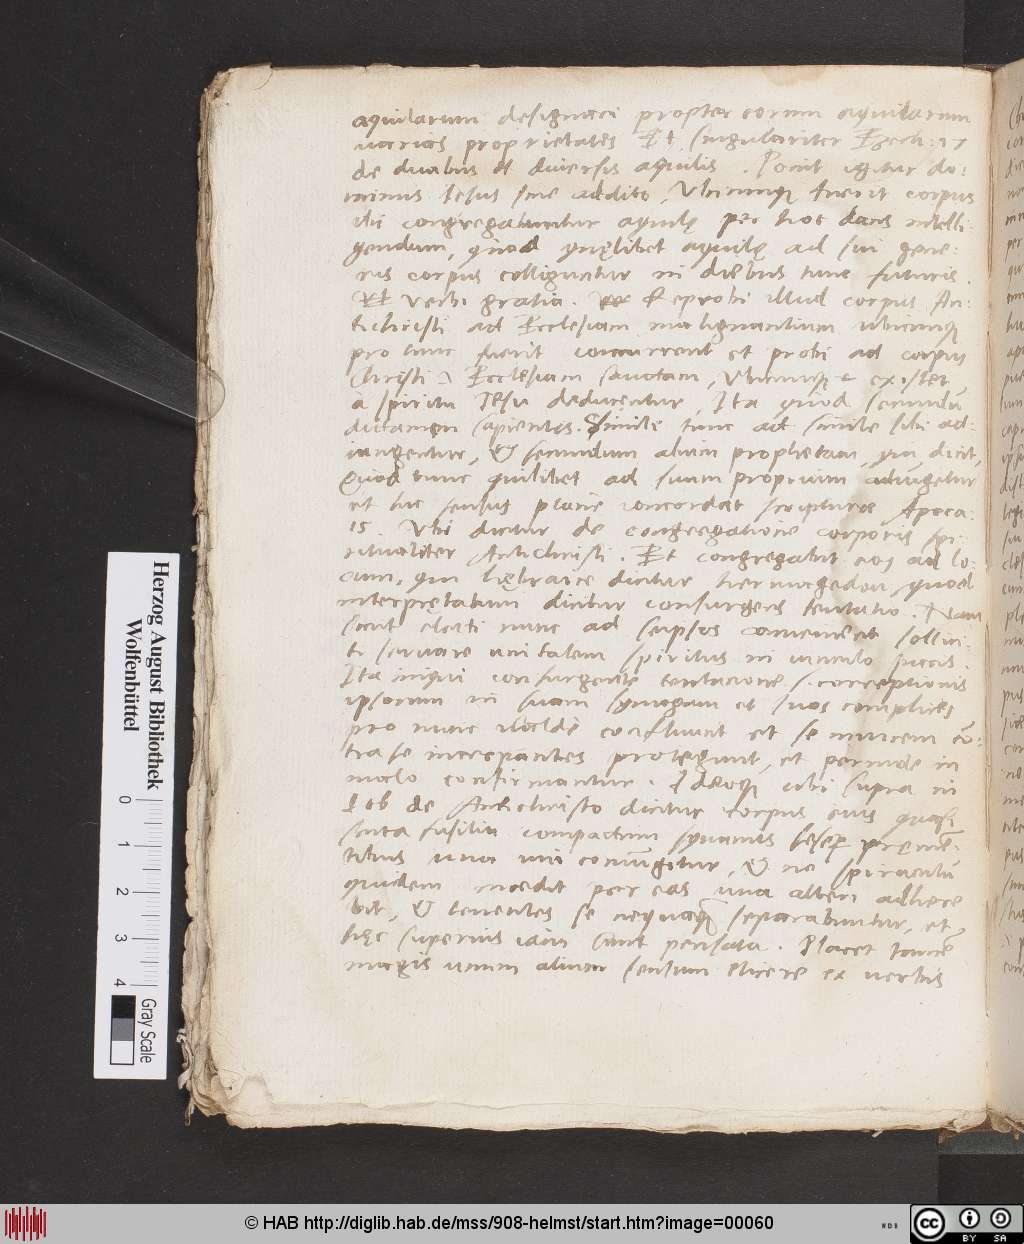 aquilarum designari propter eorum aquilarum
uarias proprietates Et singulariter Ezech: 17
de duabus et diuersis aquilis . Ponit igitur do:
minus Iesus sine addito, Vbicunq fuerit corpus
illic congregabuntur aquilę per hoc dans intelli:
gendum, quod quęlibet aquilę ad sui gene:
ris corpus colliguntur in diebus tunc futuris.
verbi gratia . Reprobi illud corpus An:
tichristi ad Ecclesiam malignantium ubicunq
pro tunc fuerit concurrent et probi ad corpus
Christi Ecclesiam sanctam, Vbicunq existet
à spiritu Iesu deducentur, Ita quod secundũ
dictamen sapientis. Simile tunc ad simile sibi ad:
iungentur, & secundum alium prophetam, qui dicit,
Quod tunc quilibet ad suum proprium adiũgetur
et hic sensus plane concordat scripturæ Apoca:
15 Vbi dicitur de congregatione corporis spi:
ritualiter Antichristi . Et congregabit eos ad lo:
cum, qui hębraice dicitur hermagedon, quod
interpretatum dicitur consurgens tentatio . Nam
sicut electi nunc ad seipsos conuenient sollici:
ti seruare unitatem spiritus in uinculo pacis.
Ita iniqui consurgente tentacione .s. correptionis
ipsorum in suam synogam et suos complices
pro nunc ualde confluunt et se inuicem cõ:
tra se increpantes protegunt, et perinde in
malo confirmantur . Ideoq ubi supra in
Iob de Antichristo dicitur corpus eius quasi
scuta fusilia compactum squamis se pręmẽ:
tibus una uni coniungitur, & ne spiraculũ
quidem incedit per eas una alteri adhere
bit, & tenentes se nequaq separabuntur, et
hęc superius iam sunt pensata . Placet tamẽ
magis unum alium sensum elicere ex uerbis
Herzog August Bibliothek
Wolfenbüttel
0 1 2 3 4
Gray Scale
© HAB http://diglib.hab.de/mss/908-helmst/start.htm?image=00060
WDB
cc BY SA